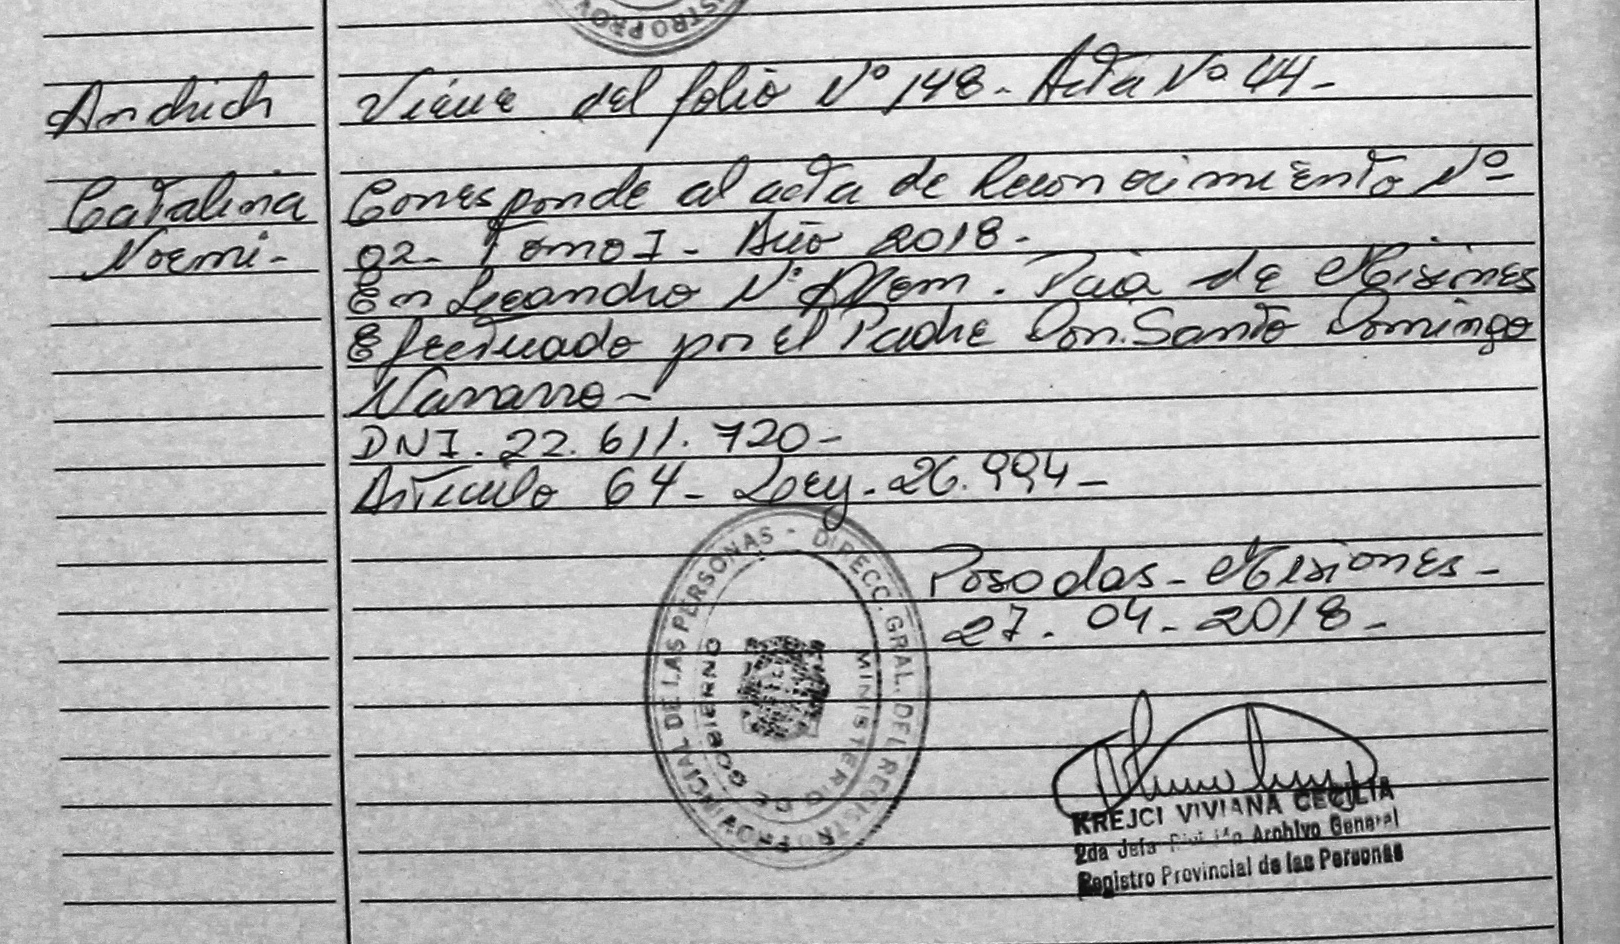 Andrich
Catalina
Noemi-
Viene del folio Nº 148- Acta Nº 44-
Corresponde al acta de Reconocimiento Nº
02- Tomo I- Año 2018-
En Leandro N. Alem. Pcia de Misiones
Efectuado por el Padre Don. Santo Domingo
Navarro-
DNI. 22.611.720-
Articulo 64- Ley- 26.994-
Posadas- Misiones-
27- 04- 2018-
DIRECC. GRAL. DEL REGISTRO PROVINCIAL DE LAS PERSONAS -
MINISTERIO DE GOBIERNO
KREJCI VIVIANA CECILIA
2da Jefa División Archivo General
Registro Provincial de las Personas